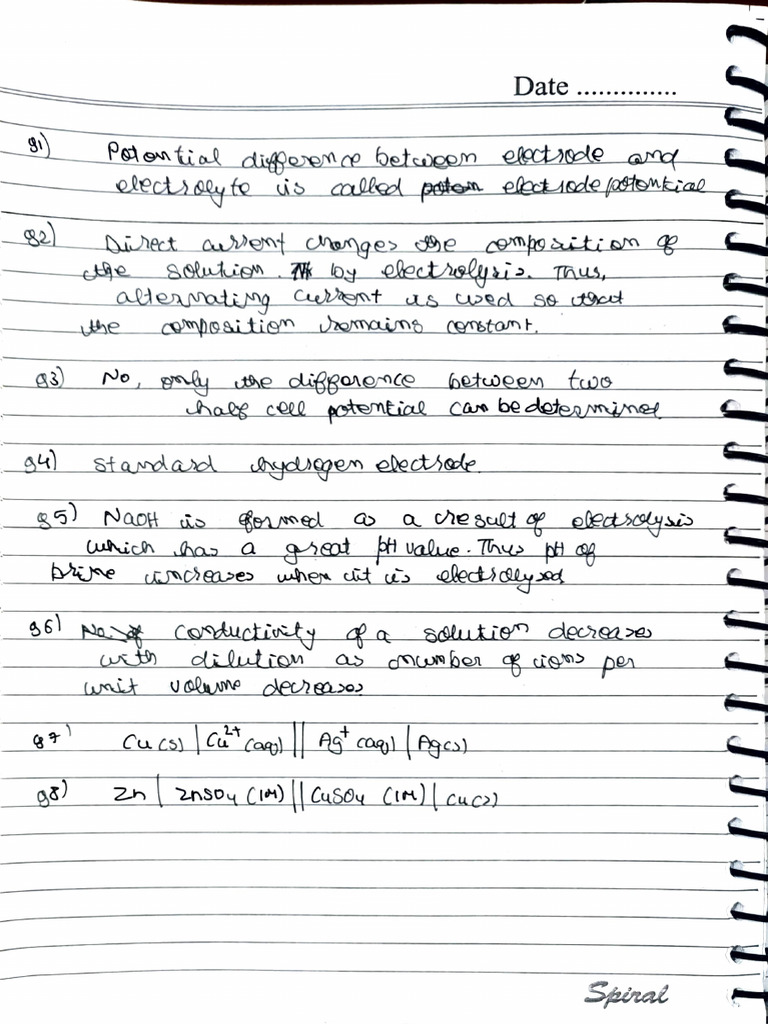 Date ..............
Q1) Potential difference between electrode and
electrolyte is called potem electrode potential
Q2) Direct current changes the composition of
the solution. Th by electrolysis. Thus,
alternating current is used so that
the composition remains constant.
Q3) No, only the difference between two
half cell potential can be determined
Q4) Standard hydrogen electrode.
Q5) NaOH is formed as a result of electrolysis
which has a great pH value. Thus pH of
brine increases when it is electrolysed
Q6) No. of conductivity of a solution decreases
with dilution as number of ions per
unit volume decreases
Q7) Cu(s) | Cu²⁺ (aq) || Ag⁺ (aq) | Ag(s)
Q8) Zn | ZnSO₄ (1M) || CuSO₄ (1M) | Cu(s)
Spiral